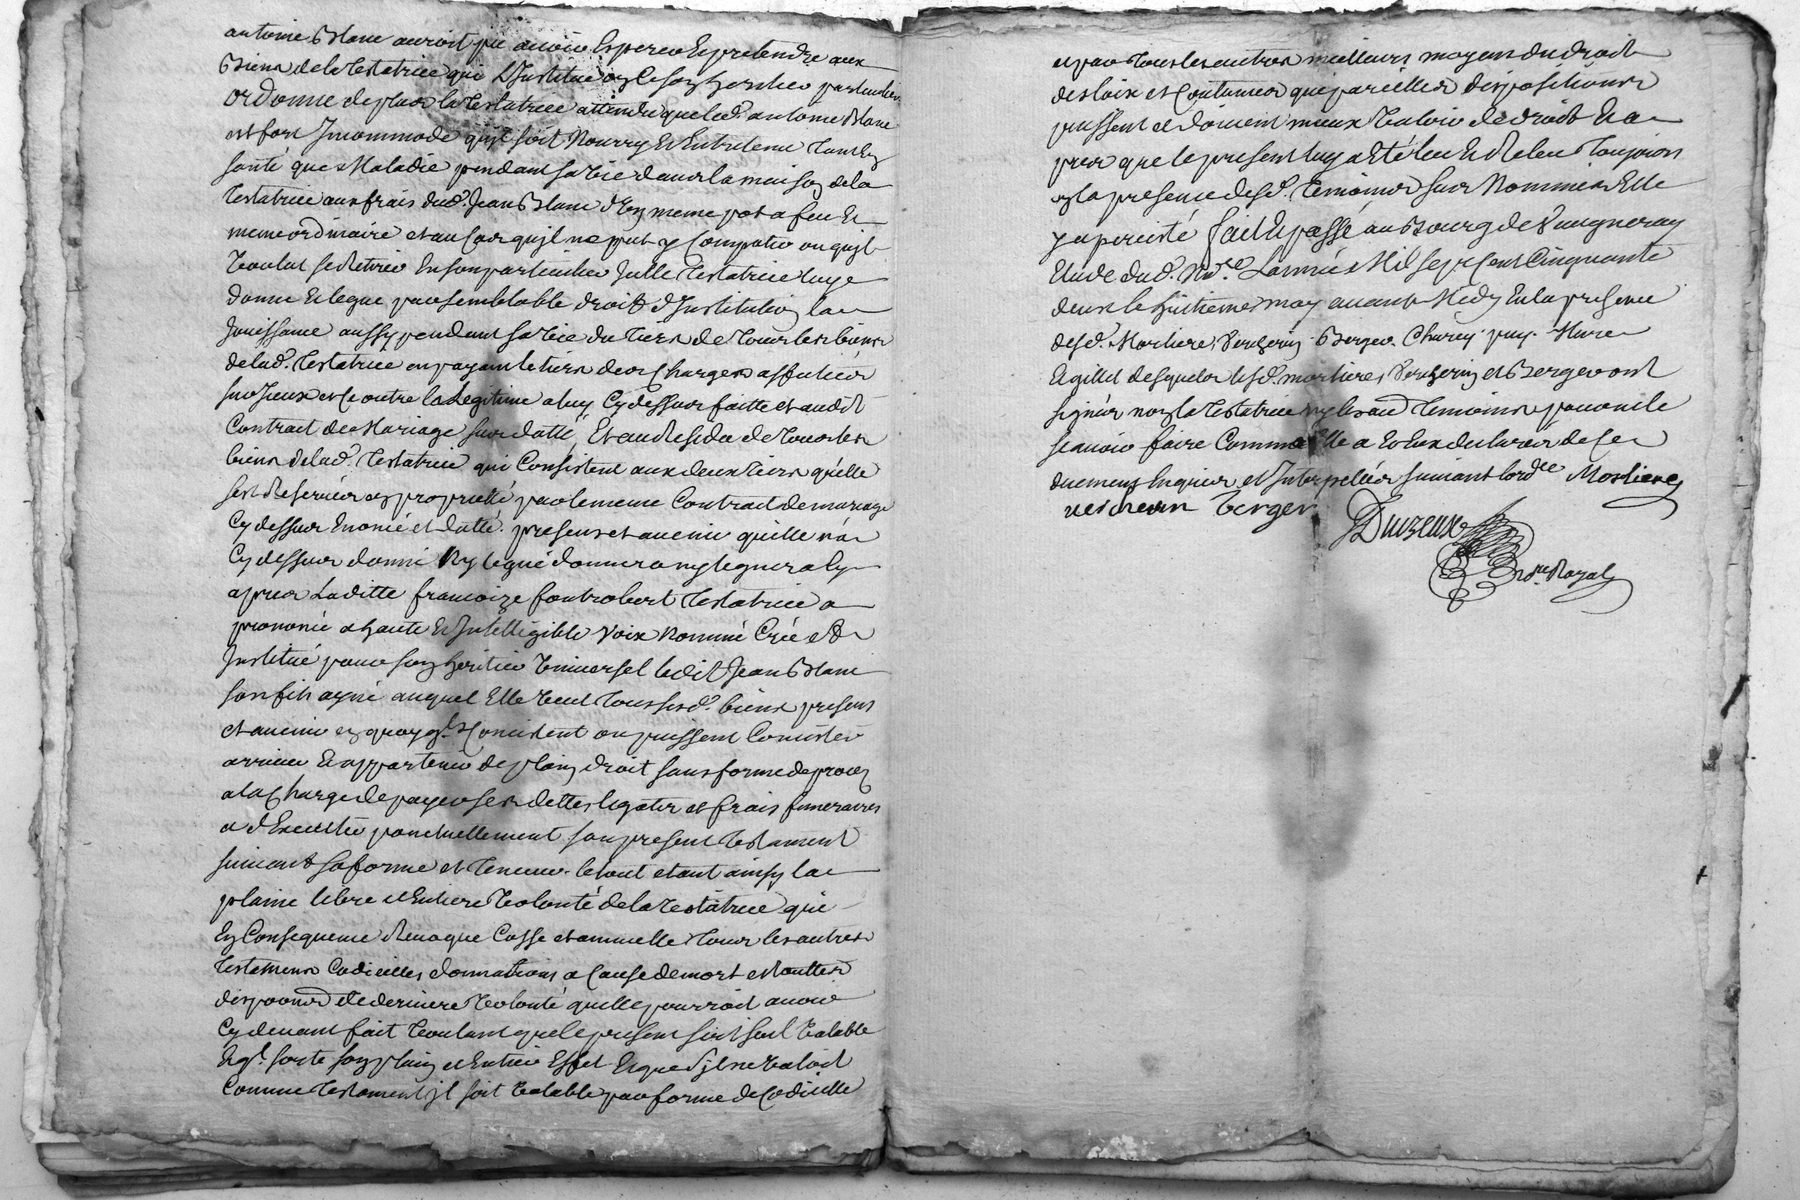 antoine Blanc auroit pu avoir Esperer Et pretendre aux
Biens de la Testatrice qui L'Institue en Ce son heritier particulier
Ordonne de plus la Testatrice attendu que led. antoine Blanc
est fort Incommodé qu'jl soit Nourry Et Entretenu tant En
santé que Maladie pendant sa vie dans la maison de la
Testatrice aux frais dud. Jean Blanc Et En meme pot a feu Et
meme ordinaire et au Cas qu'jl ne put y Compatir ou qu'jl
voulut se Retirer En son particulier Julle Testatrice luy
donne Et legue par semblable droit d'Institution la
Jouissance aussy pendant sa vie du tiers de tous les biens
de lad. Testatrice en payant le tiers des Charges affectées
sur Jceux et Ce outre la Legitime a luy Cy dessus faitte et audit
Contract de Mariage sus datté, Et au Residu de tous les
biens de lad. Testatrice qui Consistent aux deux tiers qu'elle
s'est Reservée en proprieté par le meme Contract de mariage
Cy dessus Enoncé et datté. presents et avenir qu'elle n'a
Cy dessus donné Ny legué donnera ny leguera Cy
apres Laditte francoize fontrobert Testatrice a
prononcé a haute Et Intelligible Voix Nommé Créé Et
Institué pour son heritier universel ledit Jean Blanc
son fils ayné auquel Elle veut tous sesd. biens presents
et avenir en quoy qu'jls Consistent ou puissent Consister
arriver Et appartenir de plain droit sans forme de proces
a la Charge de payer ses dettes legats et frais funeraires
et d'Executer ponctuellement son present testament
suivant sa forme et teneur. le tout etant ainsy la
plaine libre et Entiere volonté de la Testatrice qui
En Consequence Revoque Casse et annulle tous les autres
Testamens Codicilles donnations a Cause de mort et touttes
dispositions de derniere volonté qu'elle pourroit avoir
Cy devant fait voulant que le present soit seul valable
Et qu'jl sorte son plain et Entier Effet Et que s'jl ne valoit
Comme testament jl soit valable par forme de Codicille
et par tous les autres meilleurs moyens du droit
des loix et Coutumes que pareilles dispositions
puissent et doivent mieux valoir de droit Et a
pres que le present luy a Eté leu Et Releu toujours
En la presence desd. temoins sus Nommes Elle
y a persisté fait Et passé au Bourg de Vaugneray
Etude dud. Nore L'année Mil sept cent Cinquante
deux le huitieme may avant Midy En la presence
desd. Morliere, Vercherin Berger Charey puy Mure
Et gillet desquels lesd. morlieres Vercherin et Berger ont
signés non la Testatrice ny les autres temoins pour ne le
scavoir faire Comme Elle a Et Eux declarés de Ce
duement Enquis et Interpellés suivant lord.ce Morlieres
vercherin Berger
Duvzeux
Nre Royal